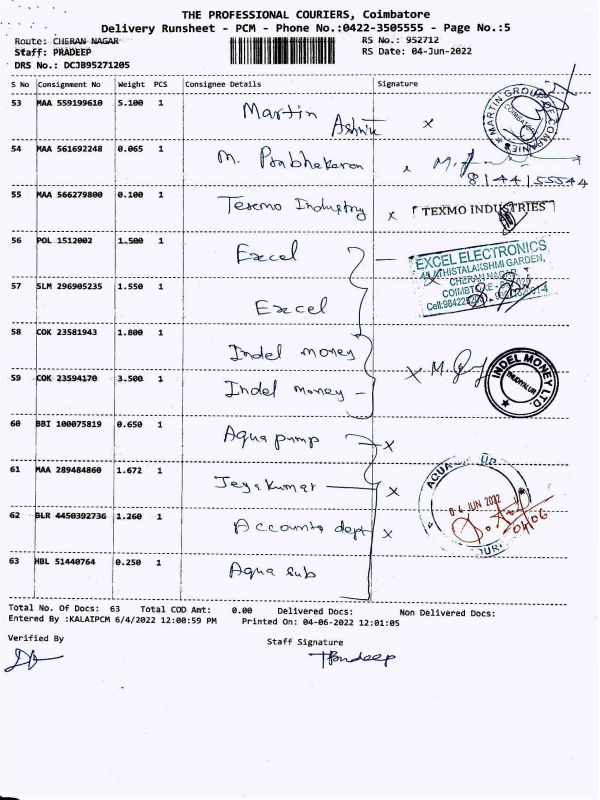 THE PROFESSIONAL COURIERS, Coimbatore
Delivery Runsheet - PCM - Phone No.:0422-3505555 - Page No.:5
Route: CHERAN NAGAR RS No.: 952712
Staff: PRADEEP RS Date: 04-Jun-2022
DRS No.: DCJB95271205
S No Consignment No Weight PCS Consignee Details Signature
53 MAA 559199610 5.100 1 Martin x
MARTIN GROUP OF COMPANIES
COIMBATORE
54 MAA 561692248 0.065 1 M. Prabhakaran
8144155544
55 MAA 566279800 0.100 1 Texmo Industry x TEXMO INDUSTRIES
56 POL 1512002 1.500 1 Excel
EXCEL ELECTRONICS
ATHISTALAKSHMI GARDEN,
CHERAN NAGAR
57 SLM 296905235 1.550 1 Excel
58 COK 23581943 1.800 1 Indel money
59 COK 23594170 3.500 1 Indel money - x
INDEL MONEY LTD.
THUDIYALUR
60 BBI 100075819 0.650 1 Aqua pump x
61 MAA 289484860 1.672 1 Jeyakumar x
AQUA
04 JUN 2022
62 BLR 4450392736 1.260 1 Accounts dept x
04/06
63 HBL 51440764 0.250 1 Aqua sub
Total No. Of Docs: 63 Total COD Amt: 0.00 Delivered Docs: Non Delivered Docs:
Entered By :KALAIPCM 6/4/2022 12:00:59 PM Printed On: 04-06-2022 12:01:05
Verified By Staff Signature